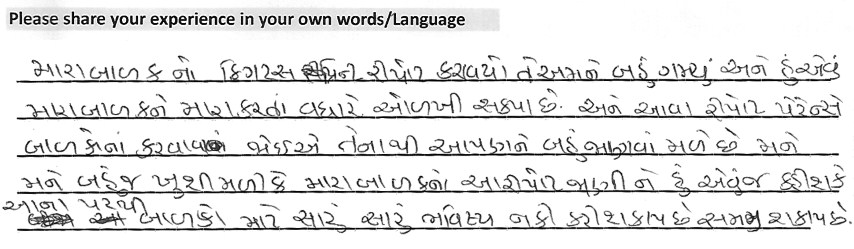 Please share your experience in your own words/Language
મારા બાળક નો ફિંગરપ્રિન્ટ રીપોટ કરાવયો તે અમને બહું ગમ્યું અને હું એવું
મારા બાળકને મારા કરતાં વધારે ઓળખી સકયા છે. અને આવા રીપોટ પેરેન્સે
બાળકોનાં કરાવવા જોઇએ તેનાથી આપણને બહું જાણવાં મળે છે મને
મને બહુજ ખુશી મળી કે મારા બાળકનો આ રીપોટ જાણી ને હું એવુંજ કહીશ કે
આના પરથી બાળકો માટે સારું સારું ભવિષ્ય નકી કરી શકાય છે સમજી શકાય છે.